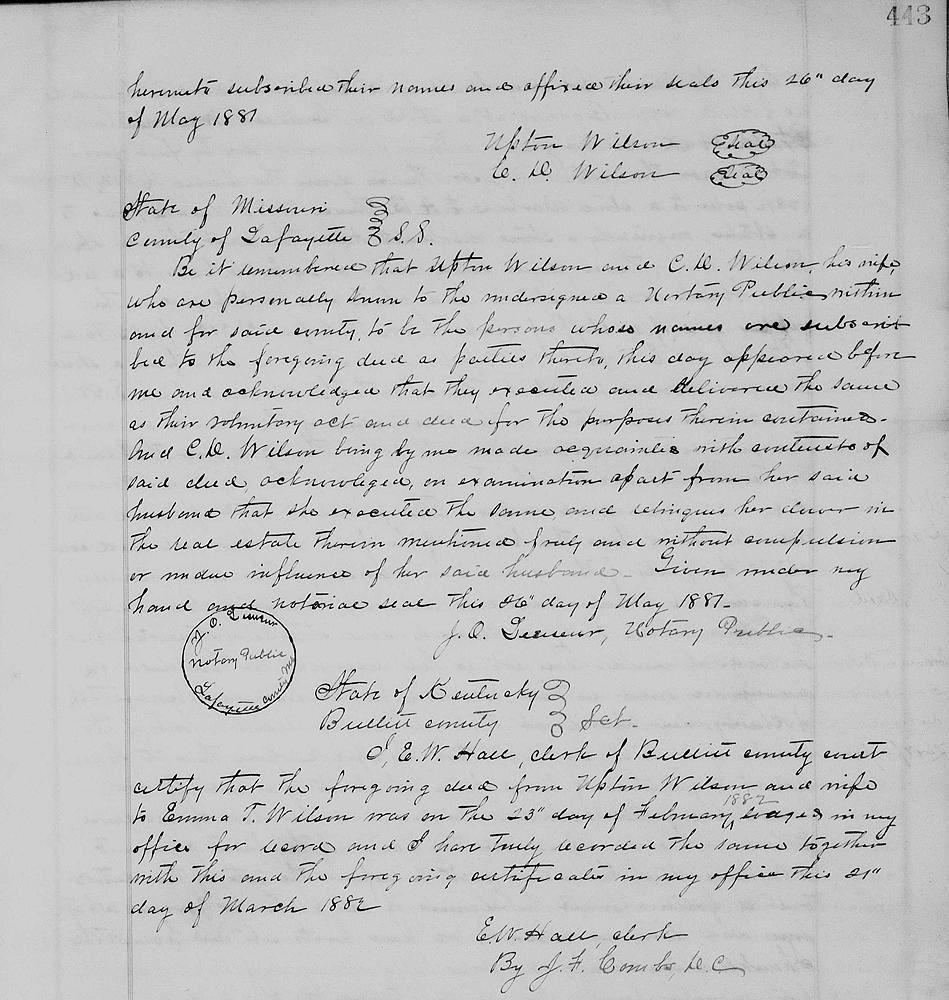 443
hereunto subscribed their names and affixed their seals this 26" day
of May 1881
Upton Wilson Seal
C. D. Wilson Seal
State of Missouri
County of Lafayette S.S.
Be it remembered that Upton Wilson and C. D. Wilson, his wife,
who are personally known to the undersigned a Nortary Public within
and for said county, to be the persons whose names are subscri
bed to the foregoing deed as parties thereto, this day appeared before
me and acknowledged that they executed and delivered the same
as their voluntary act and deed for the purposes therein contained.
And C. D. Wilson being by me made acquainted with contents of
said deed, acknowleged, on examination apart from her said
husband that she executed the same, and relinques her dower in
the real estate therein mentioned freely and without compulsion
or undue influence of her said husband. Given under my
hand and notorial seal this 26" day of May 1881.
J. O. Notary Public.
J. O.
Notary Public
Lafayette County Mo
State of Kentucky
Bullitt county Sct.
I, E. W. Hall, clerk of Bullitt county court
certify that the foregoing deed from Upton Wilson and wife
1882
to Emma T. Wilson was on the 23" day of February lodged in my
office for record and I have truly recorded the same together
with this and the foregoing certificate in my office this 21"
day of March 1882
E. W. Hall, clerk
By J. F. Combs, D. C